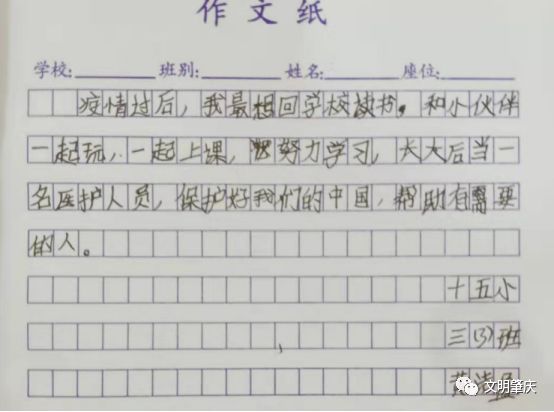 作文纸
学校: 班别: 姓名: 座位:
疫情过后，我最想回学校读书，和小伙伴
一起玩，一起上课，努力学习，长大后当一
名医护人员，保护好我们的中国，帮助有需要
的人。
十五小
三(3)班
文明肇庆